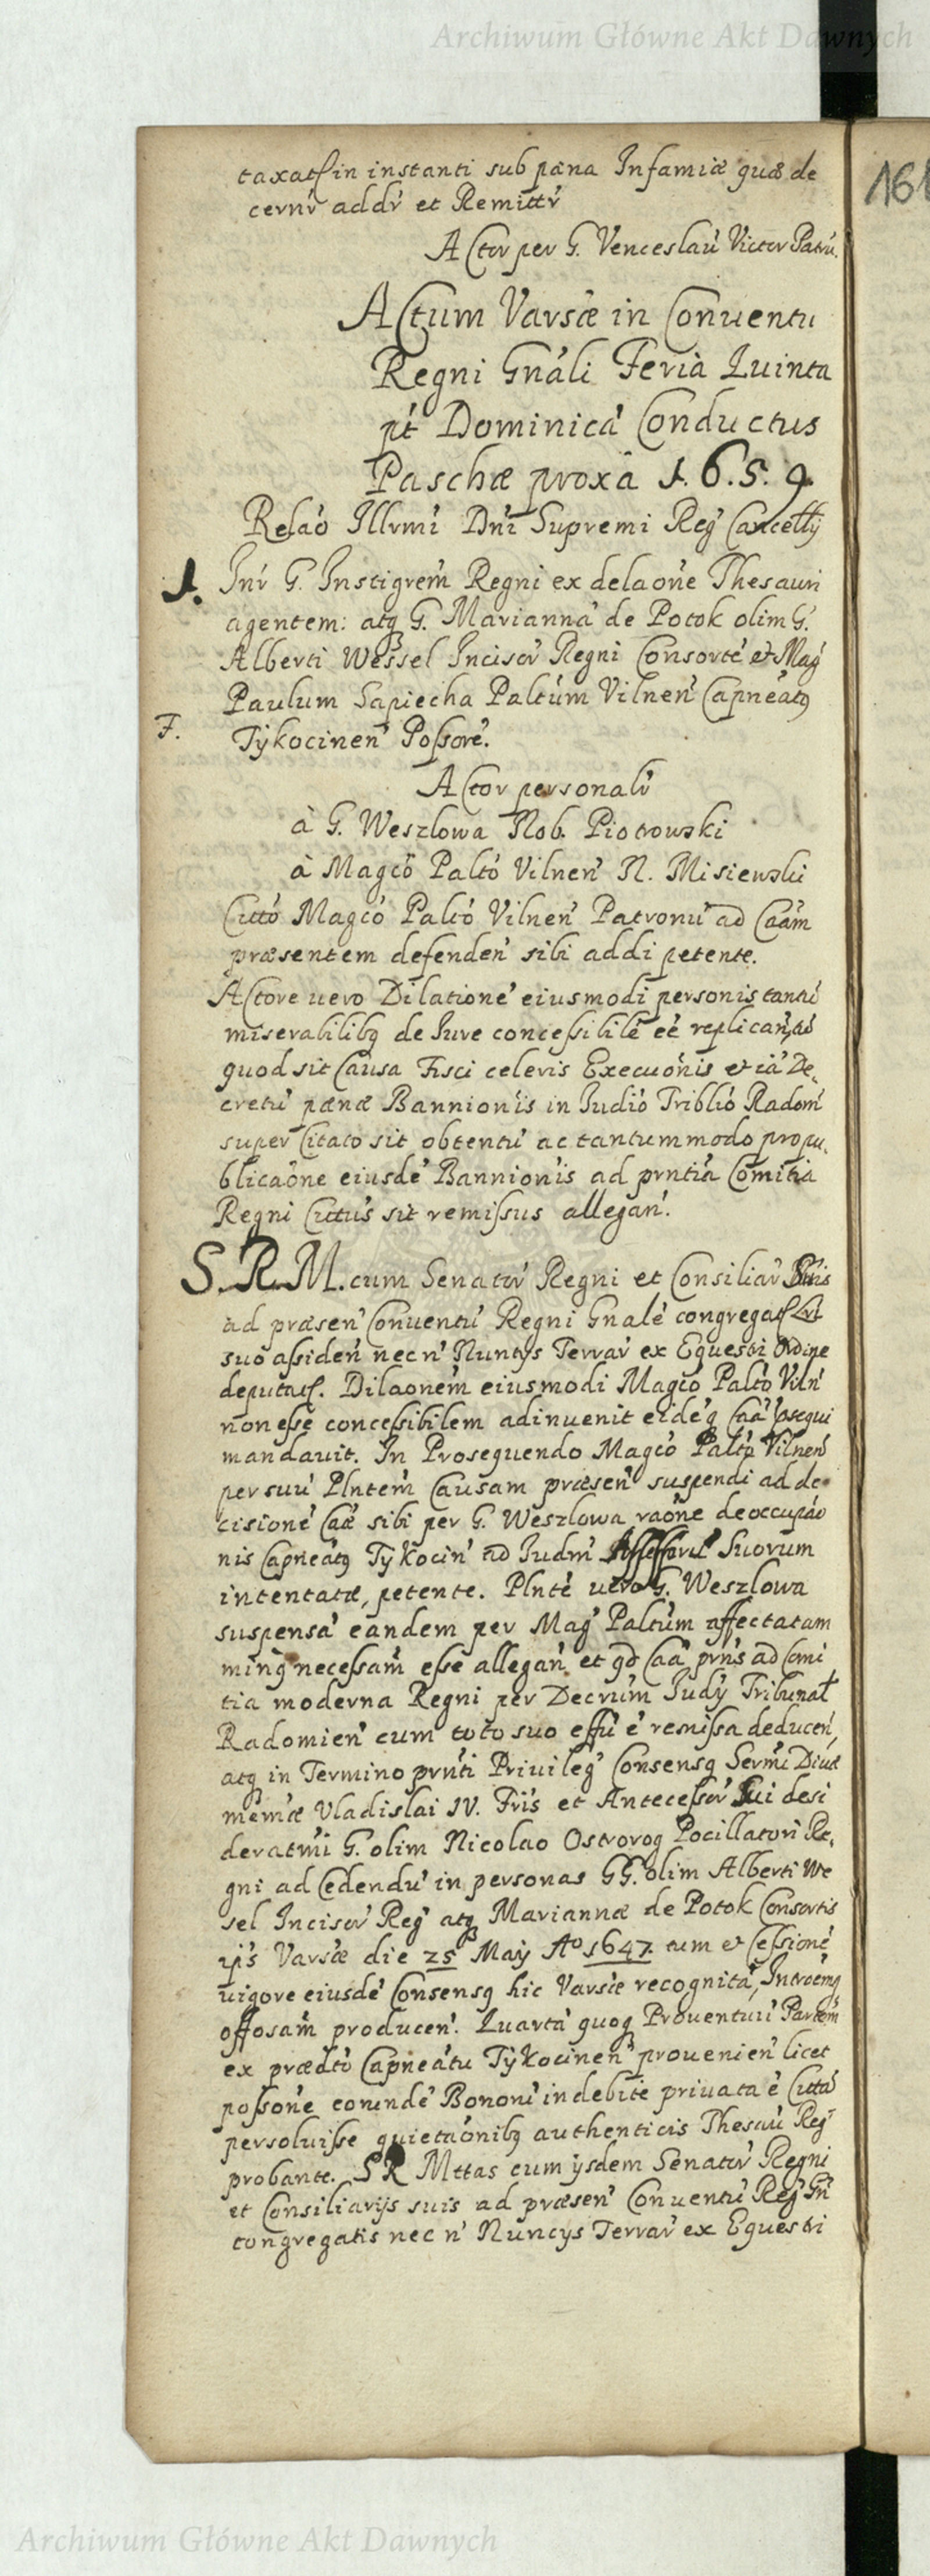 Archiwum Główne Akt Dawnych
taxat in instanti sub pæna Infamiæ quæ de
cernr̃ addr̃ et Remittr̃
161
Actor per G. Venceslaũ Victor Patrũ.
Actum Varsæ in Conuentu
Regni Gnáli Feria Quinta
pt́ Dominicá Conductus
Paschæ proxâ 1.6.5.9.
Relaó Illrmi Dńi Supremi Reg̃ Cancellij
1. Inr̃ G. Instigrem̃ Regni ex delaońe Thesauri
agentem: atq G. Marianná de Potok olim G.
Alberti Wessel Incisor̃ Regni Consorté et Mag̃
Paulum Sapiecha Paltum̃ Vilneń Capneatq
F.
Tykocineń Possoré.
Actor personalr̃
à G. Weszlowa Nob. Piotrowski
à Magcõ Paltó Vilneń N. Misiewski
Citto Magcó Paltó Vilneń Patronũ ad Caám
præsentem defendeń sibi addi petente.
Actore uero Dilationé eiusmodi personis tantũ
miserabilibq de Iure concessibilé eé replicań,
quod sit Causa Fisci celeris Execuońis et iá De,
cretũ pænæ Bannionis in Iudió Triblió Radom̃
super Citato sit obtentũ ac tantummodo propu,
blicaońe eiusdé Bannionis ad prńtia Comitia
Regni Cittus sit remissus allegań.
S.R.M. cum Senator̃ Regni et Consiliar̃ Suis
ad præseń Conuentũ Regni Gnalé congregat
suo assideń necn̄ Nuntÿs Terrar̃ ex Equestri Ordine
deputat. Dilaońem eiusmodi Magcó Paltó Vilń
non esse concessibilem adinuenit eidéq Caá psequi
mandauit. In Prosequendo Magcó Paltó Vilneń
per suũ Plntem̃ Causam præseń suspendi ad de
cisioné Caæ sibi per G. Weszlowa raońe deoccupaó
nis Capneatq Tykociń ad Iudm̃ Suorum
intentatæ, petente. Plnté uero G. Weszlowa
suspensá eandem per Mag̃ Paltum̃ affectatam
mińq necessam̃ esse allegań et qd Caá prńs ad Comi
tia moderna Regni per Decrum̃ Iudÿ Tribunal
Radomień cum toto suo effũ é remissa deduceń,
atq in Termino prńti Priuileg̃ Consensq Sermi Diuæ
memæ Vladislai IV. Fris et Antecessor̃ Sui desi
deratmi G. olim Nicolao Ostrorog Pocillatori Re,
gni ad Cedendũ in personas GG. olim Alberti We
sel Incisor̃ Reg̃ atq Mariannæ de Potok Consortis
ipś Varsæ die 25 Maÿ Aº 1647 tum et Cessioné
uigore eiusdé Consensq hic Varsæ recognitá, Introemq
offosam̃ produceń. Quartá quoq Prouentuũ Partem̃
ex prædto Capneatu Tykocineń prouenień licet
possońe eorundé Bonorũ indebité priuata é Cittá
persoluisse quietaonibq authenticis Thesau Reg̃
probante. SR Mttas cum ijsdem Senator̃ Regni
et Consiliarijs suis ad præseń Conuentũ Reg̃ Gń
congregatis nec ń Nuncÿs Terrar̃ ex Equestri
Archiwum Główne Akt Dawnych